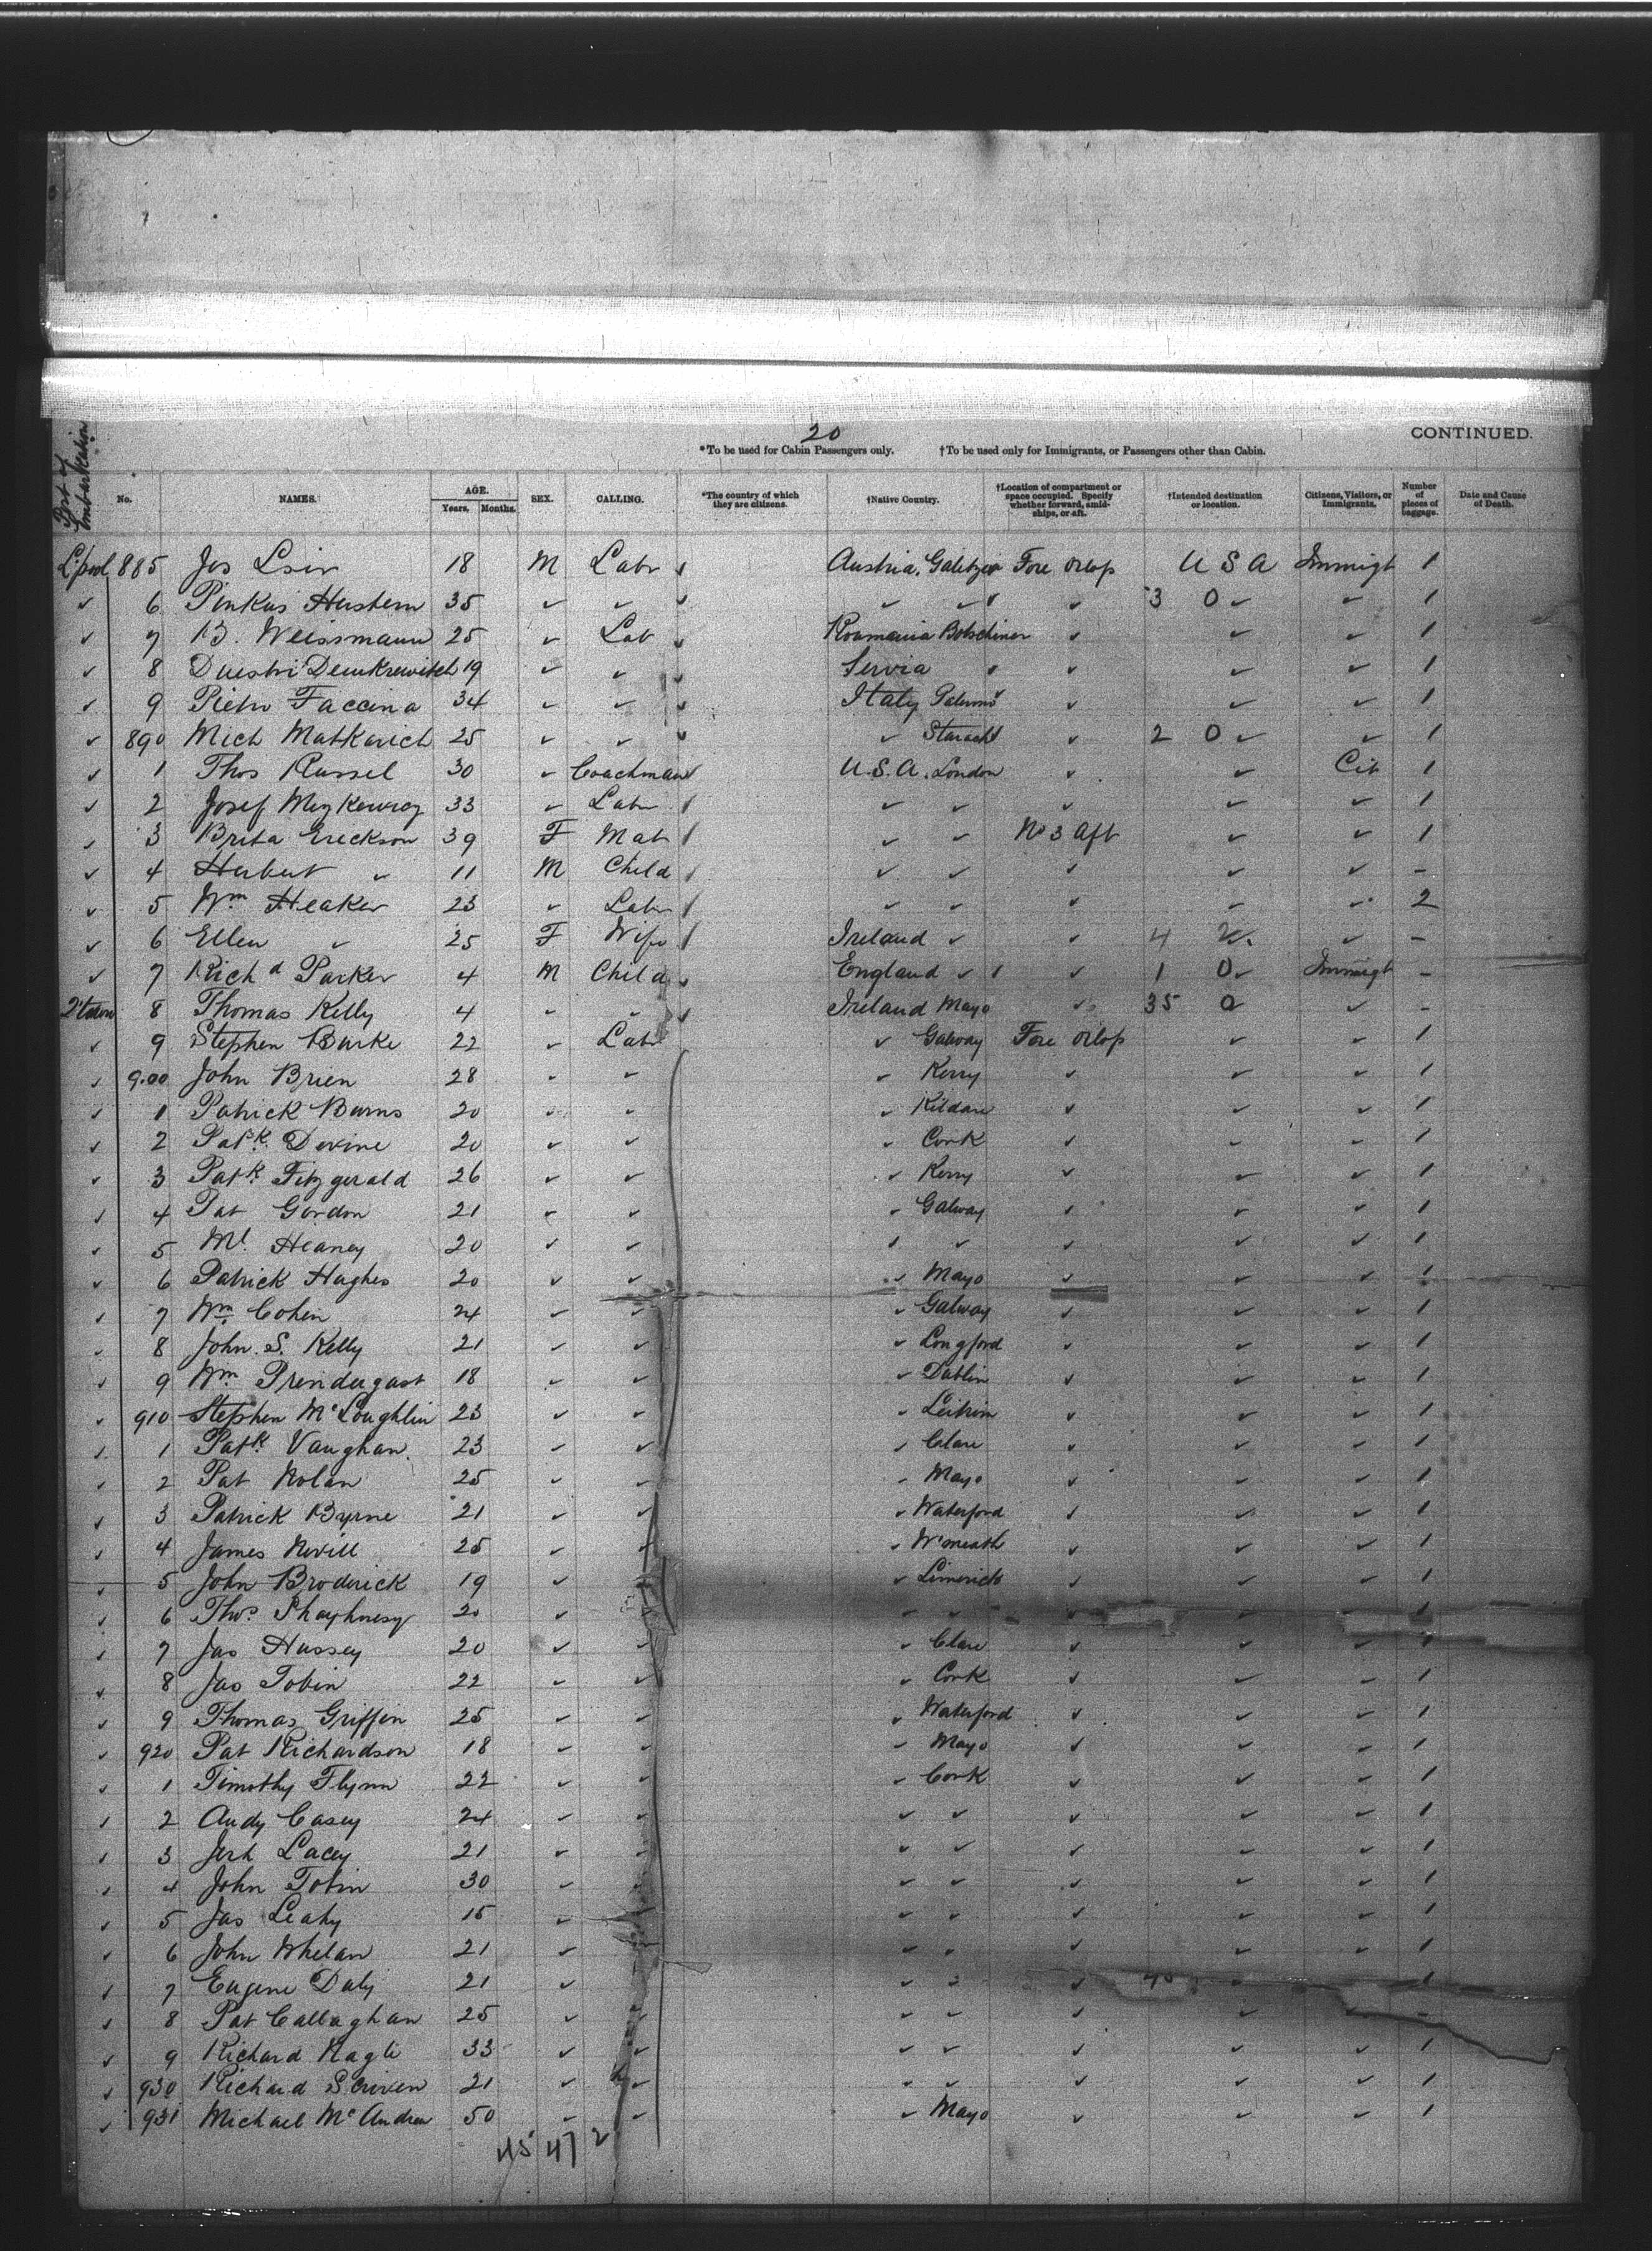 20
CONTINUED.
*To be used for Cabin Passengers only. †To be used only for Immigrants, or Passengers other than Cabin.
Port of Embarkation No. NAMES. AGE. Years. Months. SEX. CALLING. *The country of which they are citizens. †Native Country. †Location of compartment or space occupied. Specify whether forward, amidships, or aft. †Intended destination or location. Citizens, Visitors, or Immigrants. Number of pieces of baggage. Date and Cause of Death.
L'pool 885 Jos 18 M Labr Austria, Fore Orlop U S A Immigt 1
✓ 6 Pinkus 35 ✓ ✓ ✓ ✓ ✓ 3 0 ✓ ✓ 1
✓ 7 B. Weissmann 25 ✓ Lab Roumania ✓ ✓ ✓ 1
✓ 8 19 ✓ ✓ Servia ✓ ✓ ✓ 1
✓ 9 Pietro Faccina 34 ✓ ✓ Italy Palermo ✓ ✓ ✓ 1
✓ 890 Mich Matkovich 25 ✓ ✓ ✓ ✓ 2 0 ✓ ✓ 1
✓ 1 Thos Russel 30 ✓ Coachman U.S.A. London ✓ ✓ Cit 1
✓ 2 Josef 33 ✓ Labr ✓ ✓ ✓ ✓ ✓ 1
✓ 3 Brita Erickson 39 F Mat ✓ ✓ No 3 Aft ✓ ✓ 1
✓ 4 Herbert ✓ 11 M Child ✓ ✓ ✓ ✓ ✓ -
✓ 5 Wm Heaker 23 ✓ Labr ✓ ✓ ✓ ✓ ✓ 2
✓ 6 Ellen ✓ 25 F Wife Ireland ✓ ✓ 4 ✓ -
✓ 7 Richd Parker 4 M Child England ✓ ✓ 1 0 ✓ Immigt -
Q'town 8 Thomas Kelly 4 ✓ ✓ Ireland Mayo ✓ 35 0 ✓ -
✓ 9 Stephen Burke 22 ✓ Labr ✓ Galway Fore Orlop ✓ ✓ 1
✓ 900 John Brien 28 ✓ ✓ ✓ Kerry ✓ ✓ ✓ 1
✓ 1 Patrick Burns 20 ✓ ✓ ✓ Kildare ✓ ✓ ✓ 1
✓ 2 Patk. Devine 20 ✓ ✓ ✓ Cork ✓ ✓ ✓ 1
✓ 3 Patk. Fitzgerald 26 ✓ ✓ ✓ Kerry ✓ ✓ ✓ 1
✓ 4 Pat Gordon 21 ✓ ✓ ✓ Galway ✓ ✓ ✓ 1
✓ 5 Ml. Heaney 20 ✓ ✓ ✓ ✓ ✓ ✓ ✓ 1
✓ 6 Patrick Hughes 20 ✓ ✓ ✓ Mayo ✓ ✓ ✓ 1
✓ 7 Wm Cohen 24 ✓ ✓ ✓ Galway ✓ ✓ ✓ 1
✓ 8 John S. Kelly 21 ✓ ✓ ✓ Longford ✓ ✓ ✓ 1
✓ 9 Wm Prendergast 18 ✓ ✓ ✓ Dublin ✓ ✓ ✓ 1
✓ 910 Stephen McLoughlin 23 ✓ ✓ ✓ Leitrim ✓ ✓ ✓ 1
✓ 1 Patk. Vaughan. 23 ✓ ✓ ✓ Clare ✓ ✓ ✓ 1
✓ 2 Pat Nolan 25 ✓ ✓ ✓ Mayo ✓ ✓ ✓ 1
✓ 3 Patrick Byrne 21 ✓ ✓ ✓ Waterford ✓ ✓ ✓ 1
✓ 4 James Nevill 25 ✓ ✓ ✓ W'meath ✓ ✓ ✓ 1
✓ 5 John Broderick 19 ✓ ✓ ✓ Limerick ✓ ✓ ✓ 1
✓ 6 Thos. 20 ✓ ✓ ✓ ✓ ✓ ✓ ✓ 1
✓ 7 Jas Hussey 20 ✓ ✓ ✓ Clare ✓ ✓ ✓ 1
✓ 8 Jas Tobin 22 ✓ ✓ ✓ Cork ✓ ✓ ✓ 1
✓ 9 Thomas Griffin 25 ✓ ✓ ✓ Waterford ✓ ✓ ✓ 1
✓ 920 Pat Richardson 18 ✓ ✓ ✓ Mayo ✓ ✓ ✓ 1
✓ 1 Timothy Flynn 22 ✓ ✓ ✓ Cork ✓ ✓ ✓ 1
✓ 2 Andy Casey 24 ✓ ✓ ✓ ✓ ✓ ✓ ✓ 1
✓ 3 Jerh Lacey 21 ✓ ✓ ✓ ✓ ✓ ✓ ✓ 1
✓ 4 John Tobin 30 ✓ ✓ ✓ ✓ ✓ ✓ ✓ 1
✓ 5 Jas Leahy 15 ✓ ✓ ✓ ✓ ✓ ✓ ✓ 1
✓ 6 John Whelan 21 ✓ ✓ ✓ ✓ ✓ ✓ ✓ 1
✓ 7 Eugene Daly 21 ✓ ✓ ✓ ✓ ✓ ✓ 1
✓ 8 Pat Callaghan 25 ✓ ✓ ✓ ✓ ✓ ✓ ✓ -
✓ 9 Richard Nagle 33 ✓ ✓ ✓ ✓ ✓ ✓ ✓ 1
✓ 930 Richard Scriven 21 ✓ ✓ ✓ ✓ ✓ ✓ ✓ 1
✓ 931 Michael McAndrew 50 ✓ ✓ ✓ Mayo ✓ ✓ ✓ 1
45 47 2